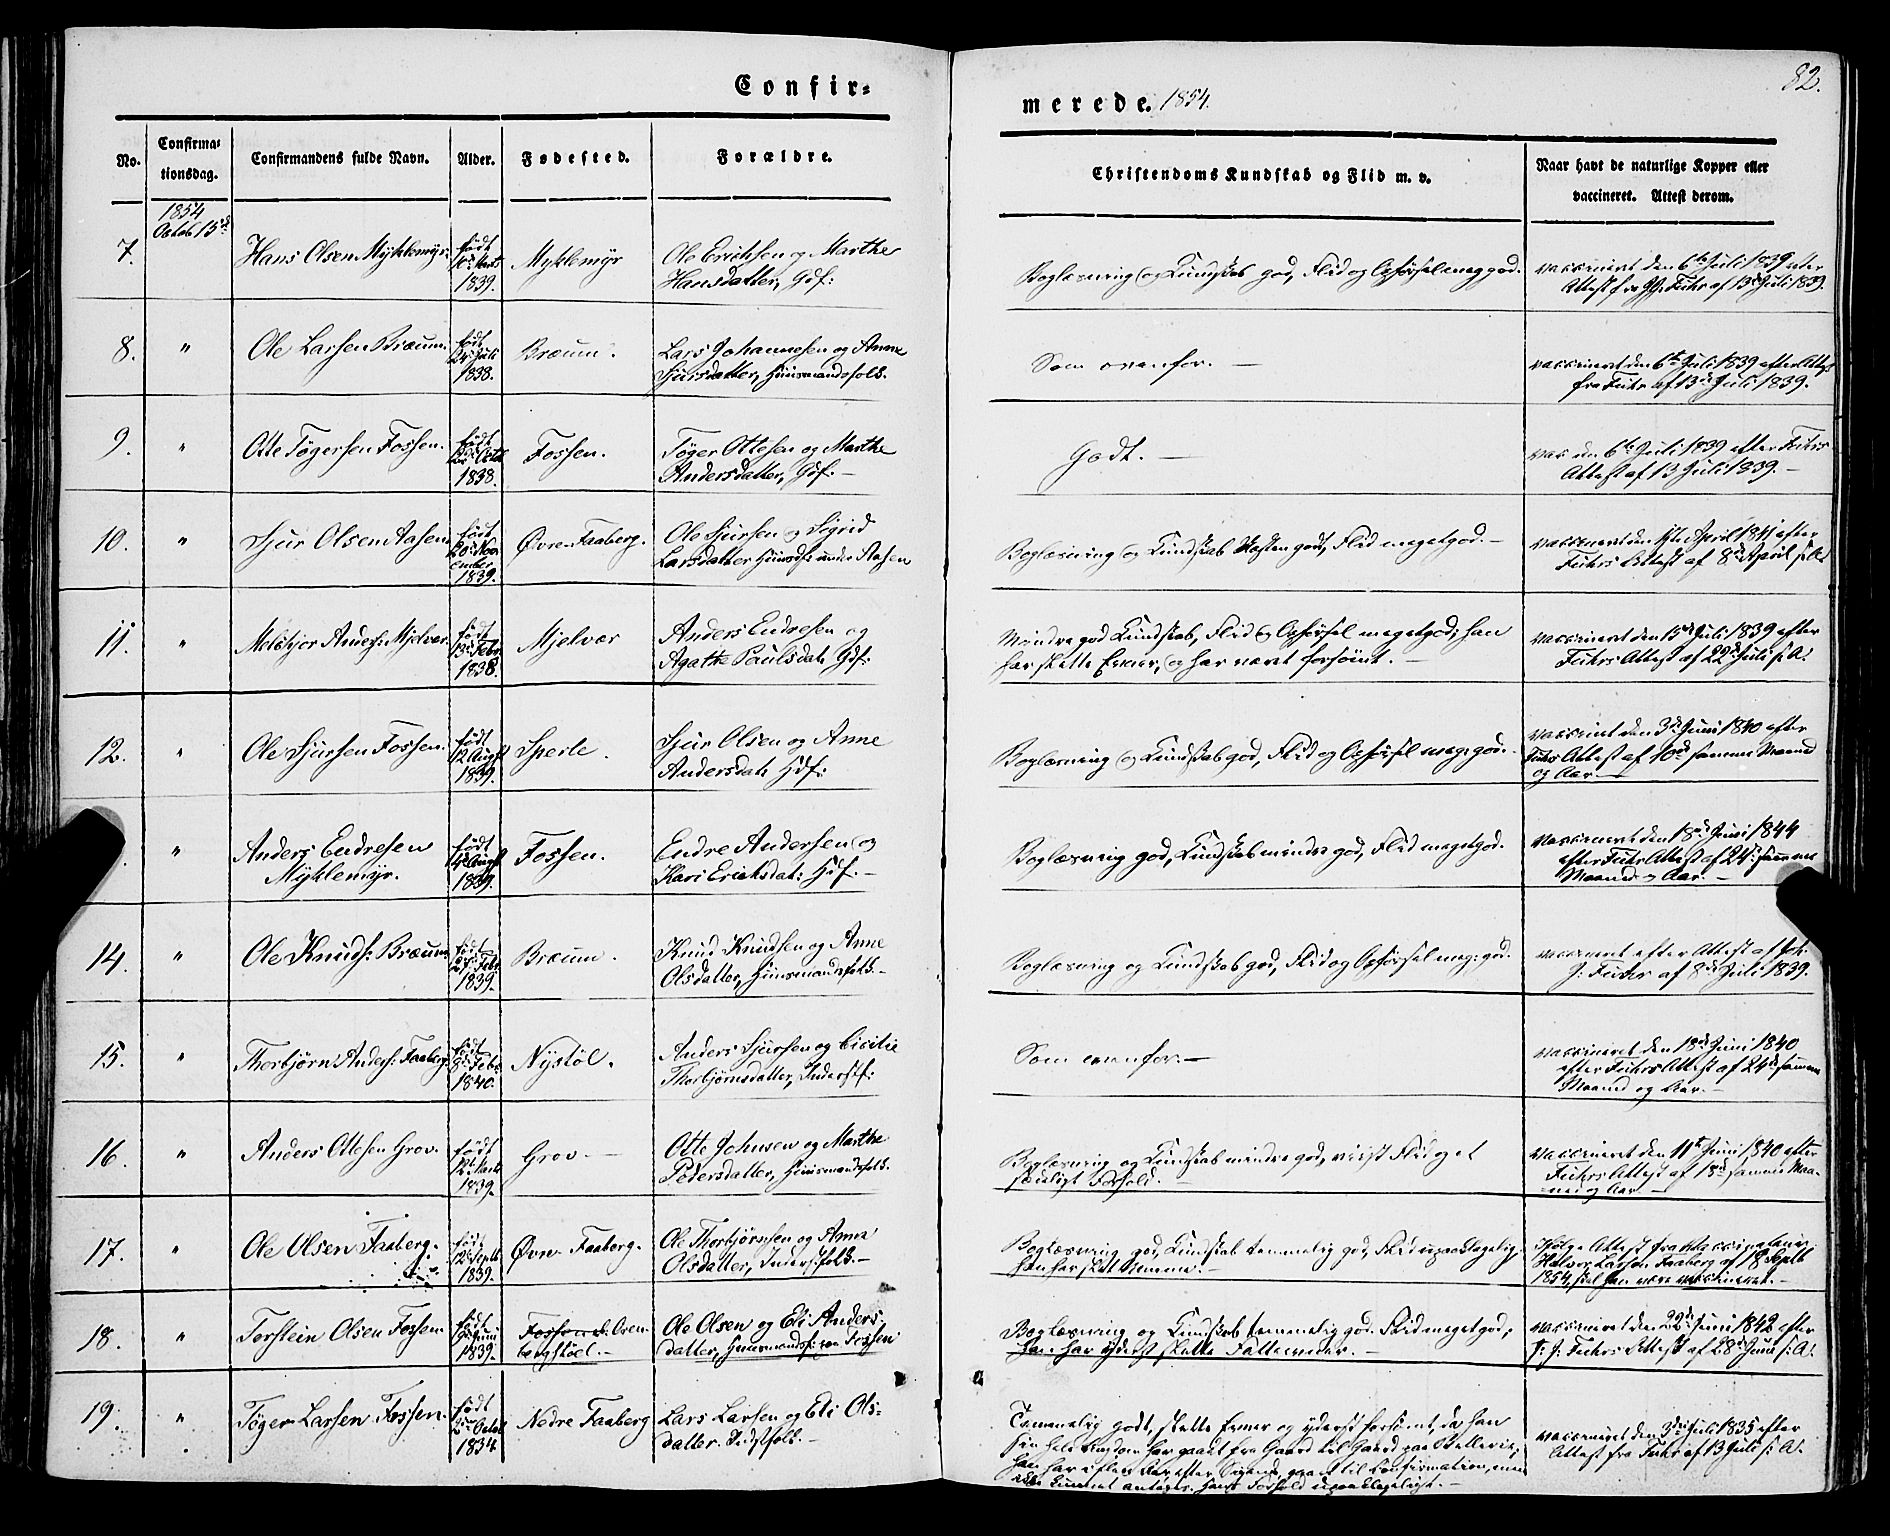 Confir=
merede. 1854.
82.
No.
Confirma=
tionsdag.
Confirmandens fulde Navn.
Alder.
Fødested.
Forældre.
Christendoms Kundskab og Flid m. v.
Naar havt de naturlige Kopper eller
vaccineret. Attest derom.
1854
Octob 15de
7.
Hans Olsen Myklemyr.
født
1839.
Myklemyr
Ole Erichsen og Marthe
Hansdatter, Gdf:
Boglæsning og Kundskab god, Flid og Opførsel meg god.
vaccineret den 6te Juli 1839 efter
Attest fra Fuhr af 13de Juli 1839.
8.
"
Ole Larsen Bræum.
født
24de Juli
1838.
Bræum.
Lars Johannesen og Anne
Sjursdatter, Huusmandsfolk.
Som ovenfor. —
vaccineret den 6te Juli 1839 efter Attest
fra Fuhr af 13de Juli 1839.
9.
"
Otte Tøgersen Fossen.
født
1838.
Fossen.
Tøger Ottesen og Marthe
Andersdatter, Gdf: —
Godt. —
vac den 6te Juli 1839 efter Fuhrs
Attest af 13 Juli 1839. —
10.
"
Sjur Olsen Aasen
født
20de Nov
ember
1839.
Øvre Faaberg.
Ole Sjursen og Sigrid
Larsdatter Huusfs under Aasen
Boglæsning og Kundskab næsten godt, Flid meget god. —
vaccineret den 1ste April 1841 efter
Fuhrs Attest af 8de April s: A:
11.
"
Melchjor Anders: Mjelvær.
født
13de Febr
1838.
Mjelvær
Anders Endresen og
Agathe Paulsdat: Gdf:
Mindre god Kundskab, Flid og Opførsel meget god; han
har slette Evner, og har været forsømt. —
vaccineret den 15de Juli 1839 efter
Fuhrs Attest af 22de Juli s: A:
12.
"
Ole Sjursen Fossen.
født
12 Augst
1839.
Sperle.
Sjur Olsen og Anne
Andersdat: Gdf:
Boglæsning og Kundskab god, Flid og Opførsel meg: god.
vaccineret den 3de Juni 1840 efter
Fuhrs Attest af 10de samme Maaned
og Aar. —
"
Anders Endresen
Myklemyr.
født
1839.
Fossen.
Endre Andersen og
Kari Erichsdat: Gdf. —
Boglæsning god, Kundskab mindre god, Flid meget god.
vaccineret den 18de Juni 1844
efter Fuhrs Attest af 24de samme
Maaned og Aar. —
14.
"
Ole Knuds: Bræum
født
1839.
Bræum.
Knud Knudsen og Anne
Olsdatter, Huusmandsfolk. —
Boglæsning og Kundskab god, Flid og Opførsel meg: god.
vaccineret efter Attest af
J: Fuhr af 8de Juli 1839.
15.
"
Thorbjørn Anders: Faaberg.
født
8de Febr
1840.
Nystøl.
Anders Sjursen og Cicilie
Thorbjørnsdatter, Inderstf:
Som ovenfor. —
vaccineret den 18de Juni 1840
efter Fuhrs Attest af 24de samme
Maaned og Aar. —
16.
"
Anders Ottesen Grov.
født
1839.
Grov. —
Otte Johnsen og Marthe
Pedersdatter, Huusmandsfolk.
Boglæsning og Kundskab mindre god, viist Flid og et
sædeligt Forhold. —
vaccineret den 11te Juni 1840 efter
Fuhrs Attest af 18de samme Maa=
ned og Aar. —
17.
"
Ole Olsen Faaberg.
født
12te Septb
1839.
Øvre Faaberg.
Ole Thorbjørnsen og Anna
Olsdatter, Inderstfolk. —
Boglæsning god, Kundskab temmelig god, Flid upaaklagelig,
han har slet Nemme. —
Ifølge Attest fra Vaccinateur
Halvor Larsen Faaberg af 18 Septb
1854, skal han være vaccineret. —
18.
"
Torstein Olsen Fossen
født
1839.
bergstøel. —
Ole Olsen og Eli Anders,
datter, Huusmandsf: paa Fossen
Boglæsning og Kundskab temmelig god. Flid meget god,
han har yderst slette Fatteevner. —
vaccineret den 22de Juni 1842 efter
J: Fuhrs Attest af 28de Juni s: A:
19.
"
Tøger Larsen Fossen.
født
1834.
Nedre Faaberg
Lars Larsen og Eli Ols=
datter. Indstfolk. —
Temmelig godt, slette Evner og yderst forsømt, da han
sin hele Ungdom har gaaet fra Gaard til Gaard paa Betlerie,
han har i flere Aar efter gaaet til Confirmation, men
ikke kunnet antages. Hans Forhold upaaklageligt. —
vaccineret den 3de Juli 1835 efter
Attest fra Fuhr af 13 Juli s: A: